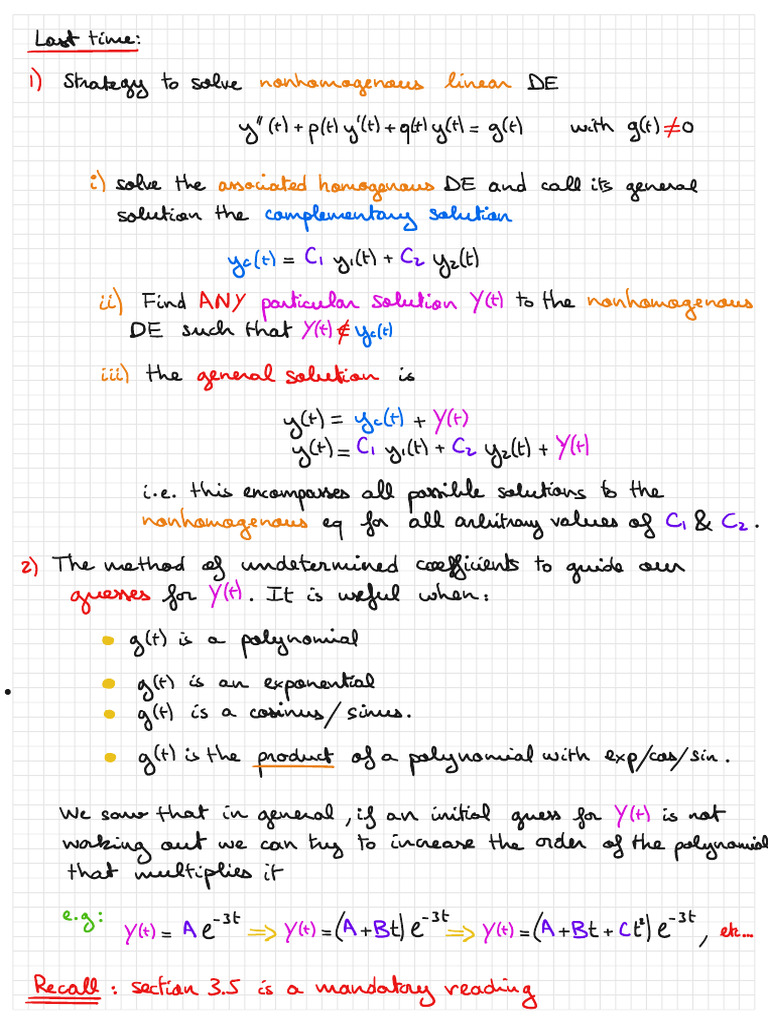 Last time:
1) Strategy to solve nonhomogenous linear DE
y''(t) + p(t) y'(t) + q(t) y(t) = g(t) with g(t) ≠ 0
i) solve the associated homogenous DE and call its general
solution the complementary solution
yc(t) = C1 y1(t) + C2 y2(t)
ii) Find ANY particular solution Y(t) to the nonhomogenous
DE such that Y(t) ∉ yc(t)
iii) the general solution is
y(t) = yc(t) + Y(t)
y(t) = C1 y1(t) + C2 y2(t) + Y(t)
i.e. this encompasses all possible solutions to the
nonhomogenous eq for all arbitrary values of C1 & C2.
2) The method of undetermined coefficients to guide our
guesses for Y(t). It is useful when:
• g(t) is a polynomial
• g(t) is an exponential
• g(t) is a cosinus/sinus.
• g(t) is the product of a polynomial with exp/cos/sin.
We saw that in general, if an initial guess for Y(t) is not
working out we can try to increase the order of the polynomial
that multiplies it
e.g: Y(t) = A e^-3t ⟹ Y(t) = (A + Bt) e^-3t ⟹ Y(t) = (A + Bt + Ct²) e^-3t, etc...
Recall: section 3.5 is a mandatory reading